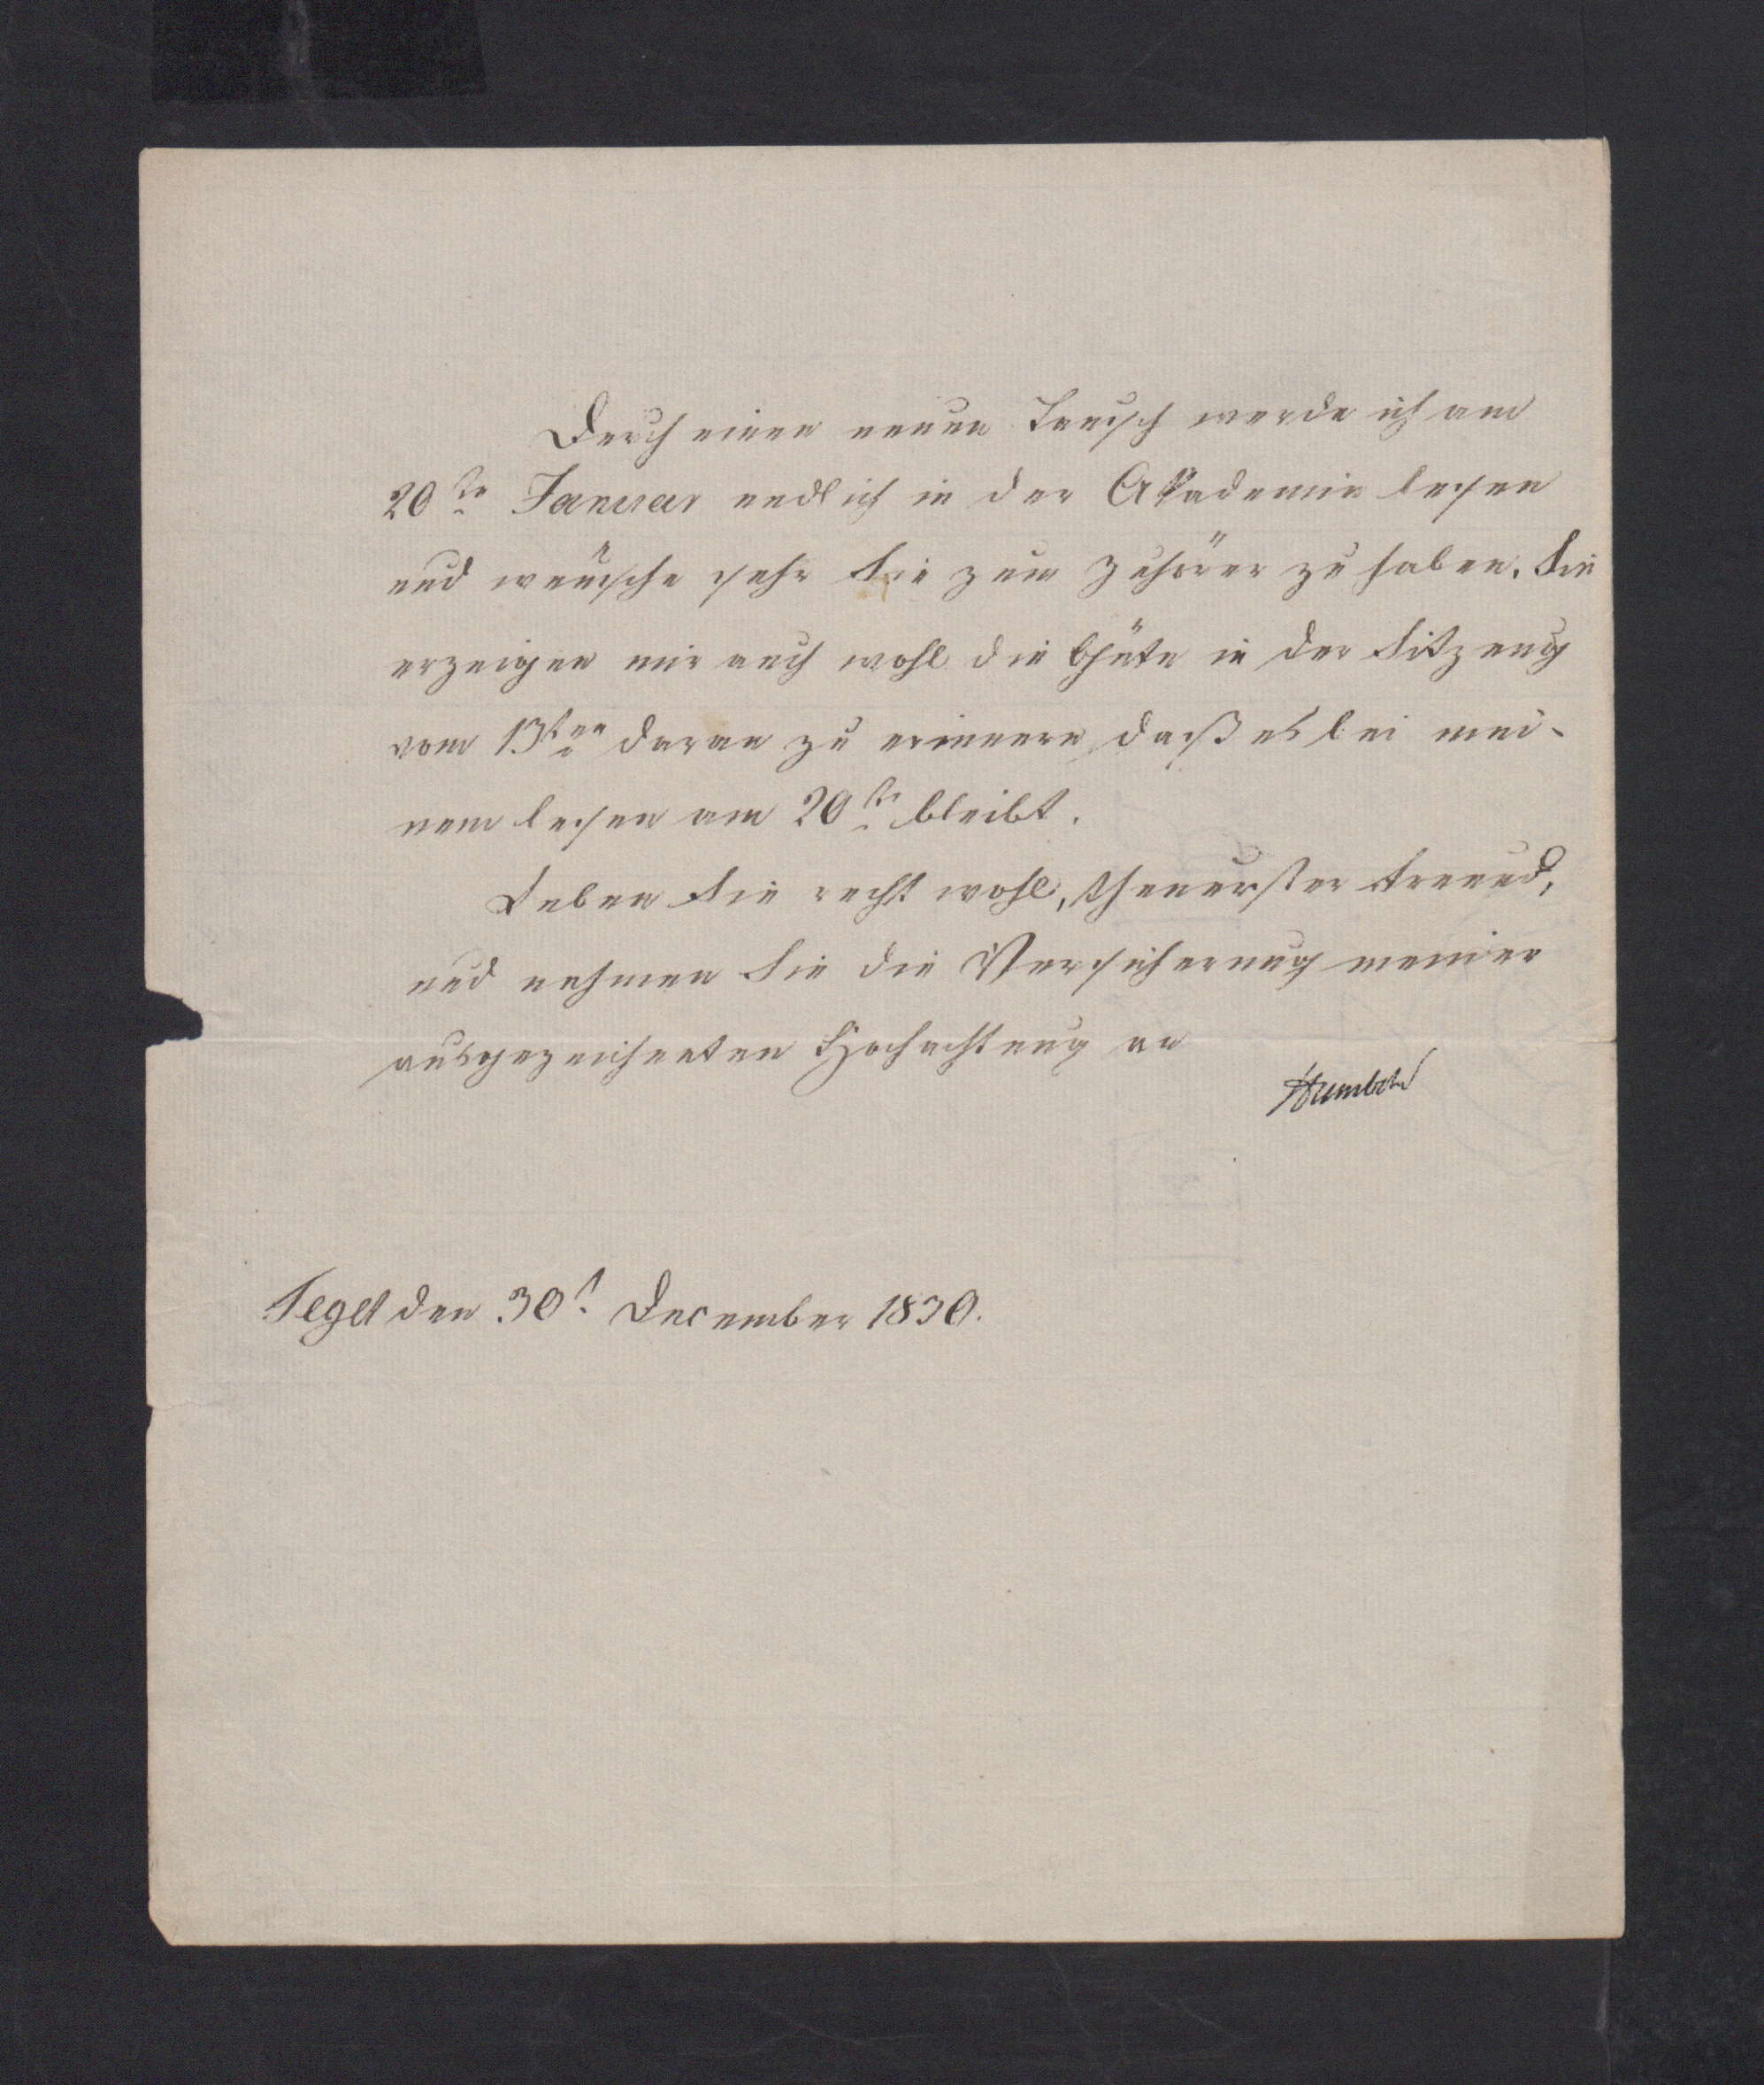 Durch einen neuen Tausch werde ich am
20ste Januar endlich in der Akademie lesen
und wünsche sehr Sie zum Zuhörer zu haben. Sie
erzeigen mir auch wohl die Güte in der Sitzung
vom 13ten daran zu erinnern daß es bei mei-
nem lesen am 20ste bleibt.
Leben Sie recht wohl, theuerster Freund,
und nehmen Sie die Versicherung meiner
ausgezeichneten Hochachtung an
Humboldt
Tegel den 30t. December 1830.